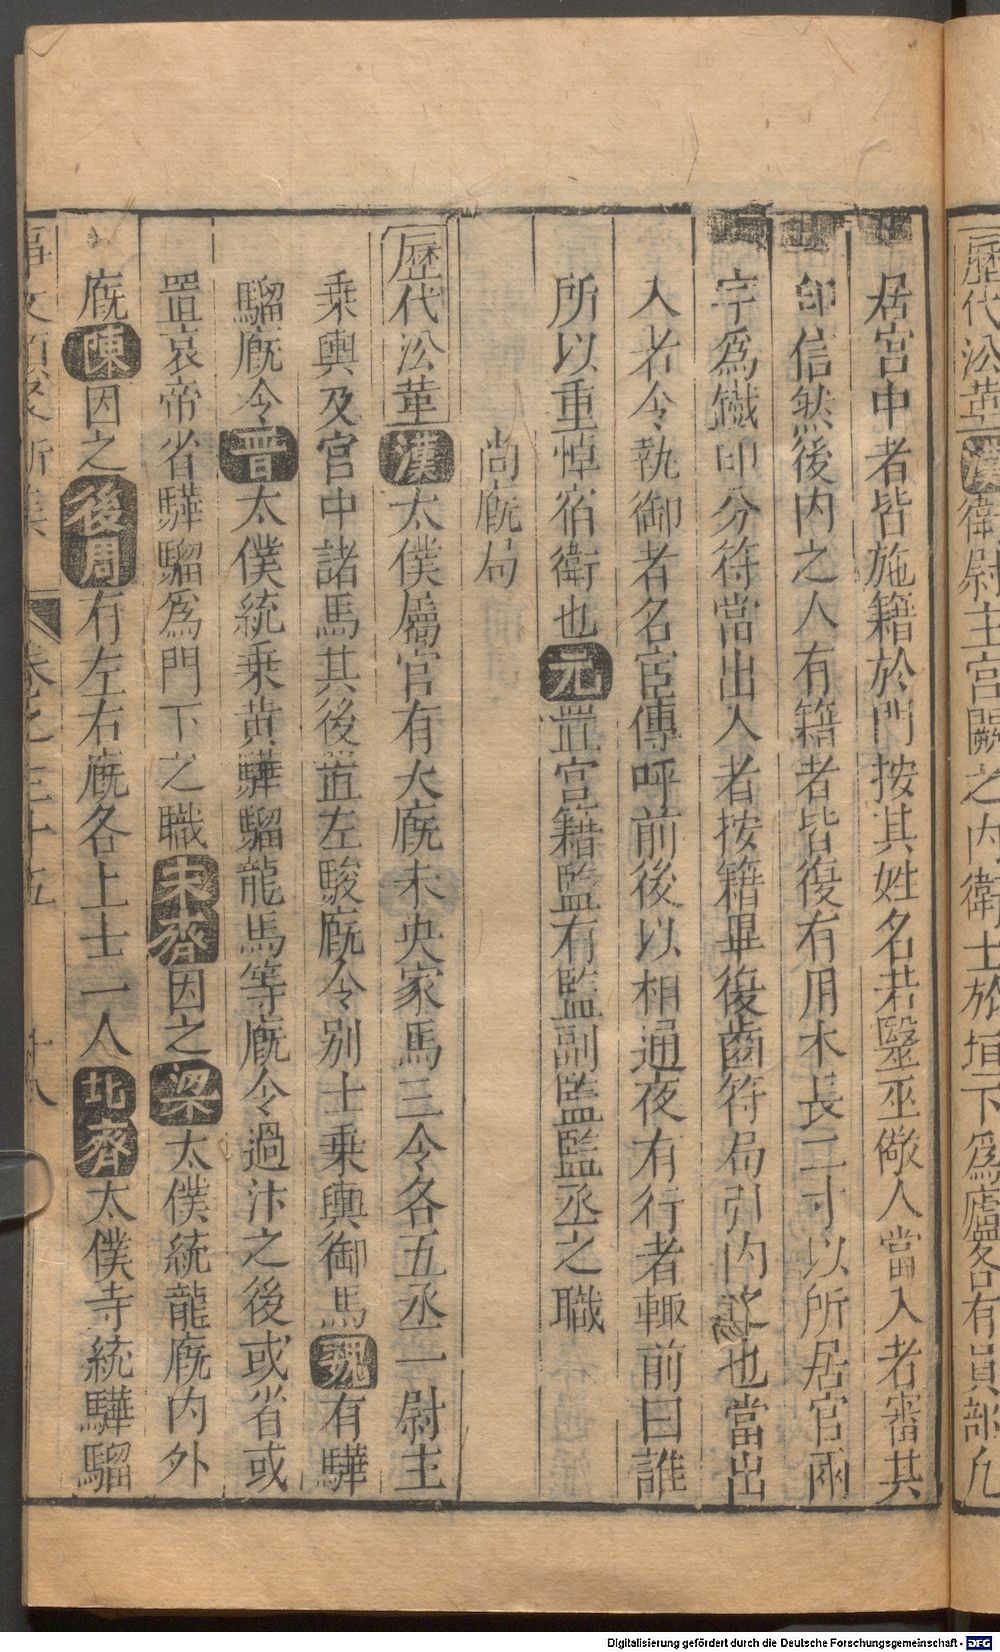 歷代㳂革漢衛尉主宮闕之內衛士於垣下爲廬各有員部凡
居宮中者皆施籍於門按其姓名若醫巫僦人當入者審其
印信然後內之人有籍者皆復有用木長二寸以所居官兩
字爲鐵印分符當出入者按籍畢復齒符局引內也當出
入者令執御者名宦傳呼前後以相通夜有行者輙前曰誰
所以重惇宿衛也元置宮籍監有監副監監丞之職
尚廐局
歷代㳂革漢太僕屬官有大廐未央家馬三令各五丞一尉主
乗輿及宫中諸馬其後置左駿廐令别士乗輿御馬魏有驊
騮廐令晋太僕統乗黄驊騮龍馬等廐令過汴之後或省或
置哀帝省驊騮爲門下之職宋齊因之梁太僕統龍廐內外
廐陳因之後周有左右廐各上士一人北齊太僕寺統驊騮
事文類聚新集 卷之三十五 十八
Digitalisierung gefördert durch die Deutsche Forschungsgemeinschaft - DFG